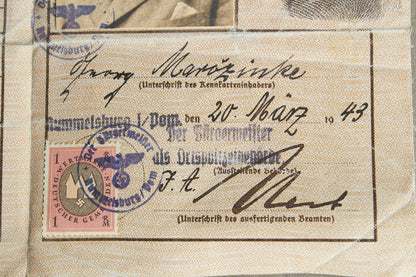 Georg Marözinke
(Unterschrift des Kennkarteninhabers)
Rummelsburg i/Pom. den 20. März 1943
Der Bürgermeister
als Ortspolizeibehörde
(Ausstellende Behörde)
J. A.
(Unterschrift des ausfertigenden Beamten)
Der Bürgermeister
Rummelsburg/Pom
1 1
DEUTSCHER GEMEINDEN
1 RM
Rummelsburg/Pom